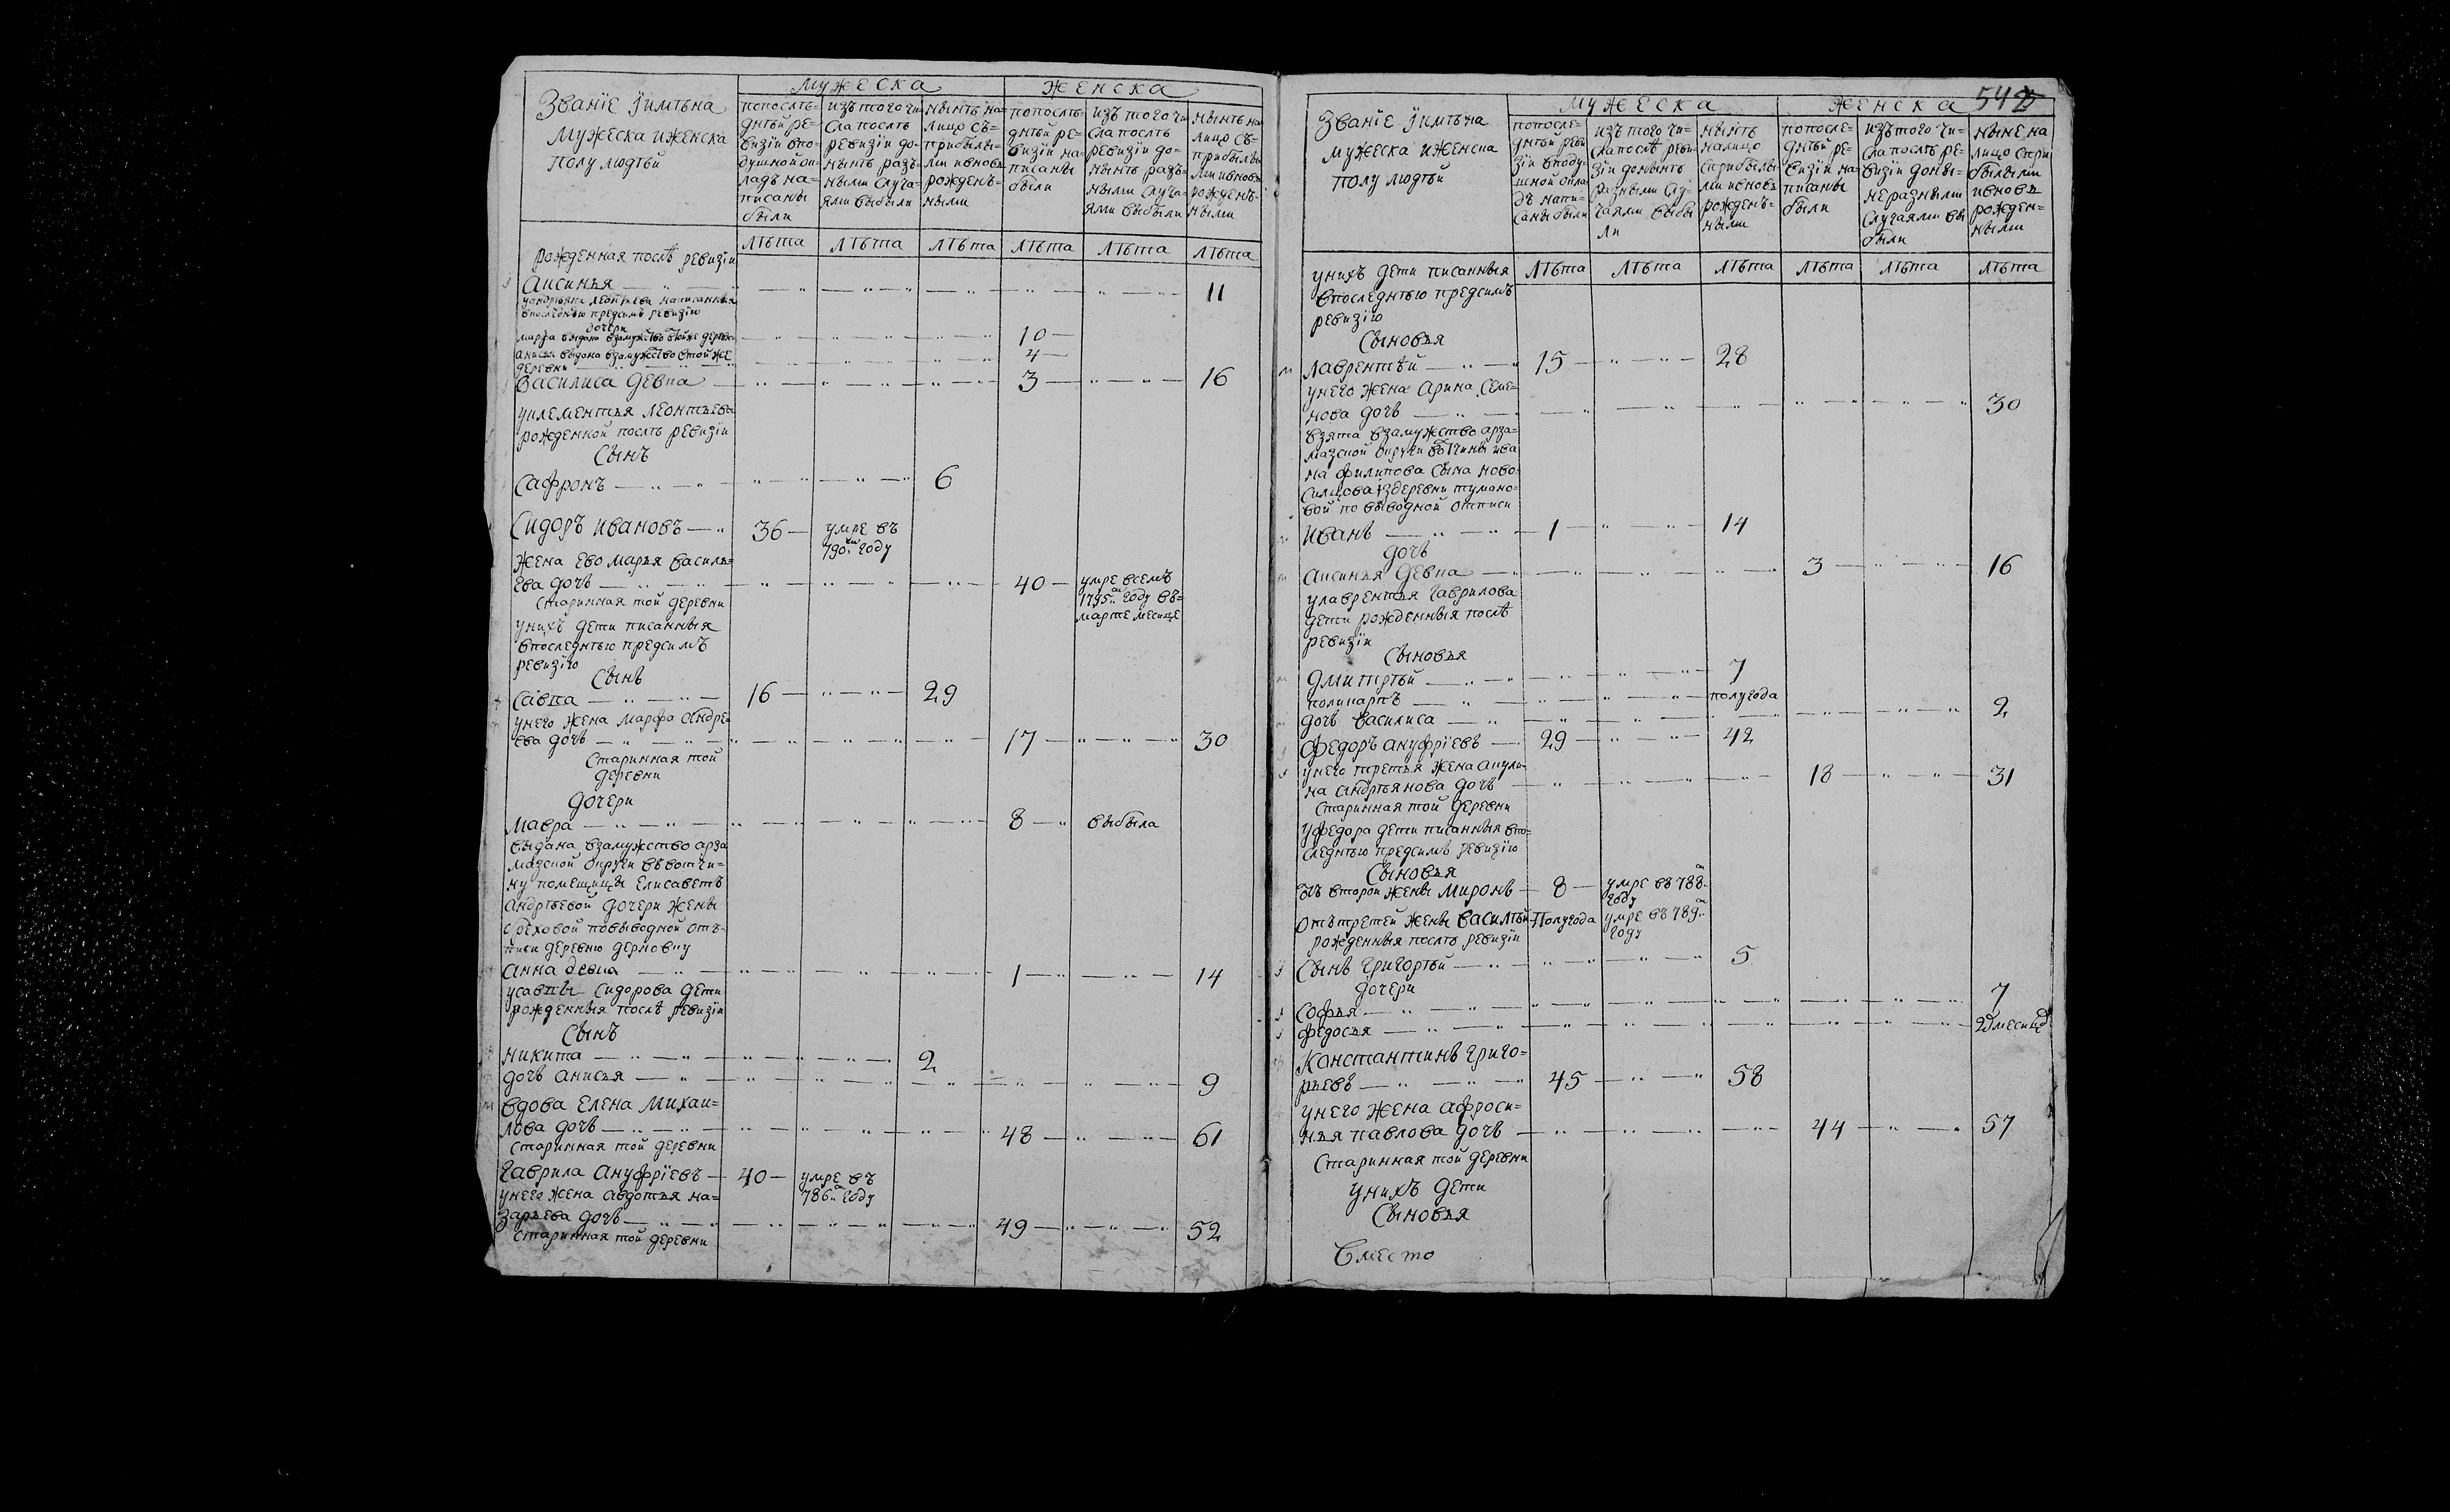 Званіе Јимѣна
Мужеска иженска
полу людѣй
Мужеска
Женска
попослѣ=
днѣй ре=
визіи впо=
душной ок=
ладъ на=
писаны
были
изътого чи
сла послѣ
ревизіи до=
нынѣ разъ=
ными случа=
ями выбыли
нынѣ на=
лицо съ=
прибылы=
ми ивновь
рожденъ=
ными
попослѣ=
днѣй ре=
визіи на=
писаны
были
изъ того чи
сла послѣ
ревизіи до=
нынѣ разъ=
ными случа=
ями выбыли
нынѣ на
лицо съ=
прибылы
ми ивновь
рожденъ=
ными
лѣта лѣта лѣта лѣта лѣта лѣта
рожденная послѣ ревизіи
Аксинья 11
уандрѣяна леонтьева написанныя
впоследнѣю предсимъ ревизію
дочери
марфа выдана взамужство втойже деревни 10
анисья выдана взамужство втойже 4
деревни
василиса девка 3 16
уклементья леонтьева
рожденной послѣ ревизіи
Сынъ
Сафронъ 6
Сидоръ ивановъ 36 умре въ
790м году
жена ево марья василь=
ева дочь 40 умре всемъ
1795м году въ=
марте месяце
старинная той деревни
унихъ дети писанныя
впоследнѣю предсимъ
ревизію
Сынъ
Савка 16 29
унего жена марфа андре=
ева дочь 17 30
старинная той
деревни
дочери
мавра 8 выбыла
выдана взамужство арза
мазской округи въвотчи=
ну помещицы елисаветъ
андрѣевой дочери жены
ореховой повыводной отъ=
писи деревню дерновку
анна девка 1 14
усавки сидорова дети
рожденныя послѣ ревизіи
Сынъ
никита 2
дочь анисья 9
вдова елена михаи=
лова дочь 48 61
старинная той деревни
гаврила ануфріевъ 40 умре въ
786м году
унего жена авдотья на=
зарьева дочь 49 52
старинная той деревни
542
Званіе Јимѣна
мужеска иженска
полу людѣй
мужеска
женска
попосле=
днѣй реви
зіи вподу=
шной окла
дъ напи=
саны были
изъ того чи=
сла послѣ реви=
зіи донынѣ
разными слу=
чаями выбы
ли
нынѣ
налицо
сприбылы
ми ивновь
рожденъ=
ными
попосле=
днѣй ре=
визіи на=
писаны
были
изътого чи=
сла послѣ ре=
визіи доны=
не разными
случаями вы
были
ныне на
лицо спри
былыми
ивновь
рожден=
ными
лѣта лѣта лѣта лѣта лѣта лѣта
унихъ дети писанныя
впоследнѣю предсимъ
ревизію
Сыновья
лаврентѣй 15 28
унего жена арина семе=
нова дочь 30
взята взамужство арза=
мазской округи вотчины ива
на филипова сына ново=
силцова издеревни тумано=
вой по выводной отписи
иванъ 1 14
дочь
аксинья девка 3 16
улаврентья гаврилова
дети рожденныя послѣ
ревизіи
Сыновья
дмитрѣй 7
поликарпъ полугода
дочь василиса 2
федоръ ануфріевъ 29 42
унего третья жена акули=
на андрѣянова дочь 18 31
старинная той деревни
уфедора дети писанныя впо=
следнѣю предсимъ ревизію
Сыновья
отъ второй жены миронъ 8 умре въ 788м
году
отътретей жены василѣй Полугода умре въ 789м
году
рожденныя послѣ ревизіи
Сынъ григорѣй 5
дочери
Софья 7
федосья 2 месяцъ
Канстантинъ григо=
рьевъ 45 58
унего жена афроси=
нья павлова дочь 44 57
старинная той деревни
унихъ дети
Сыновья
Вместо